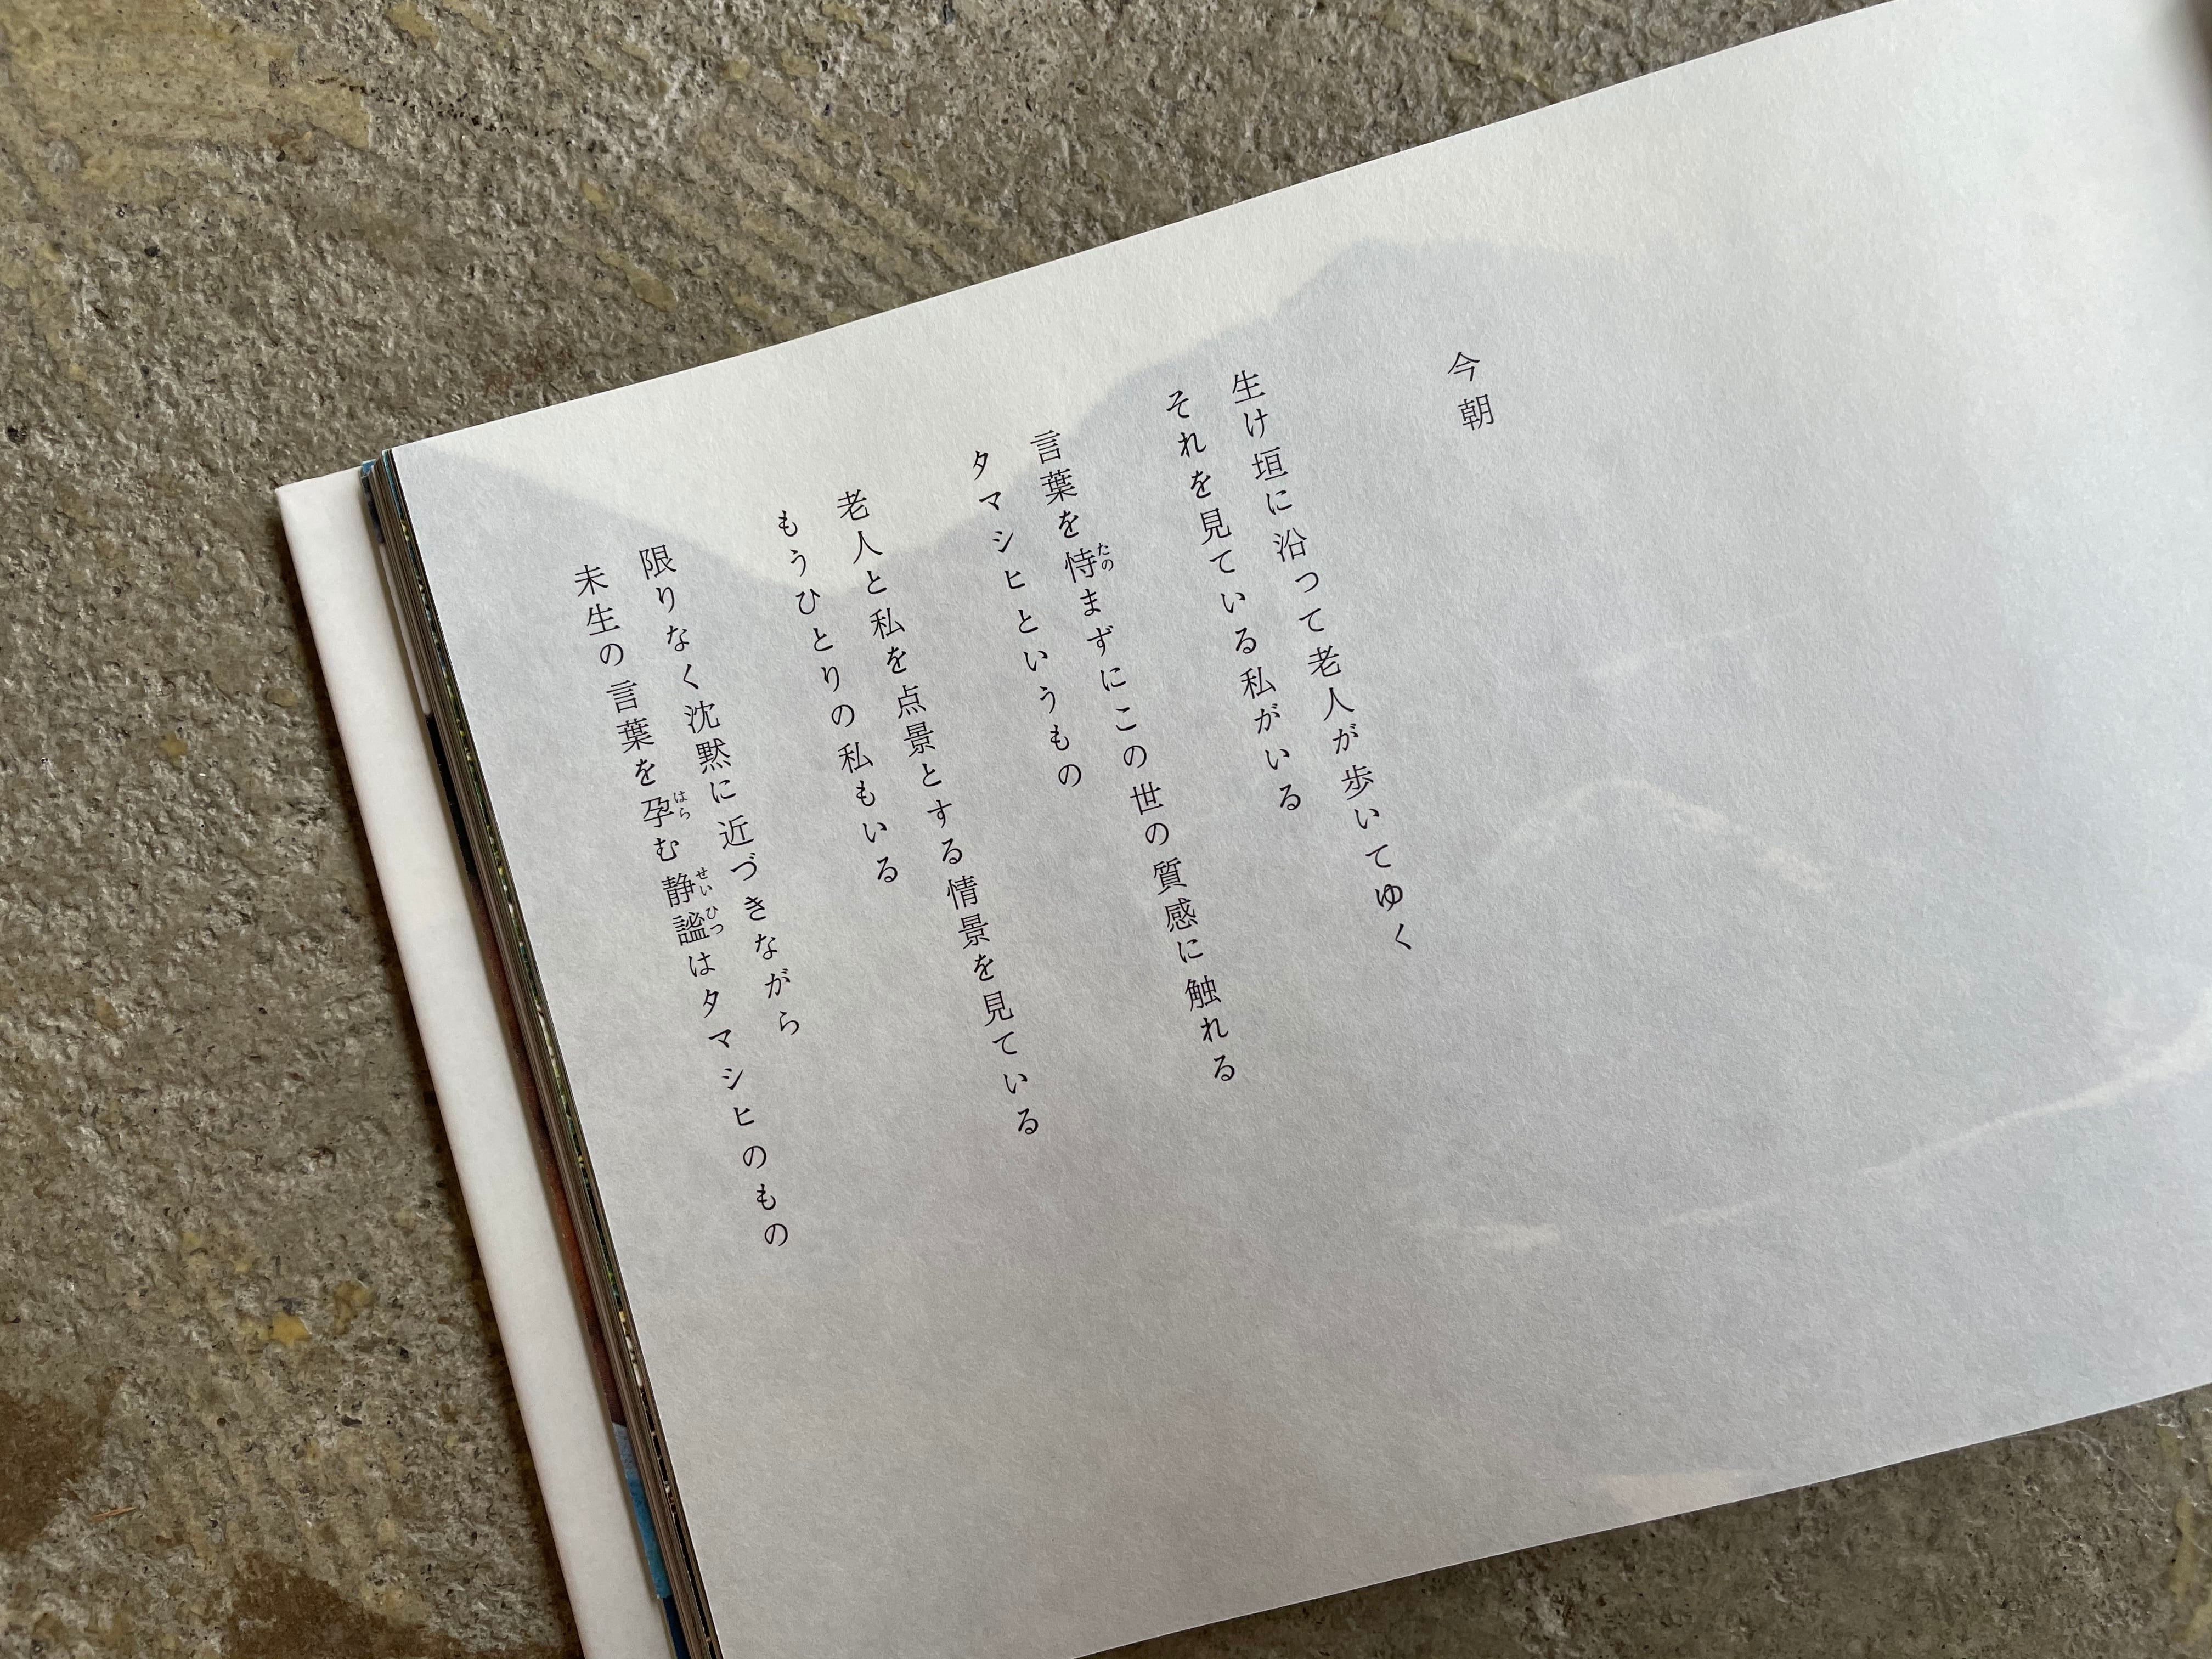 今朝
生け垣に沿って老人が歩いてゆく
それを見ている私がいる
言葉を恃まずにこの世の質感に触れる
たの
タマシヒというもの
老人と私を点景とする情景を見ている
もうひとりの私もいる
限りなく沈黙に近づきながら
未生の言葉を孕む静謐はタマシヒのもの
はら
せいひつ